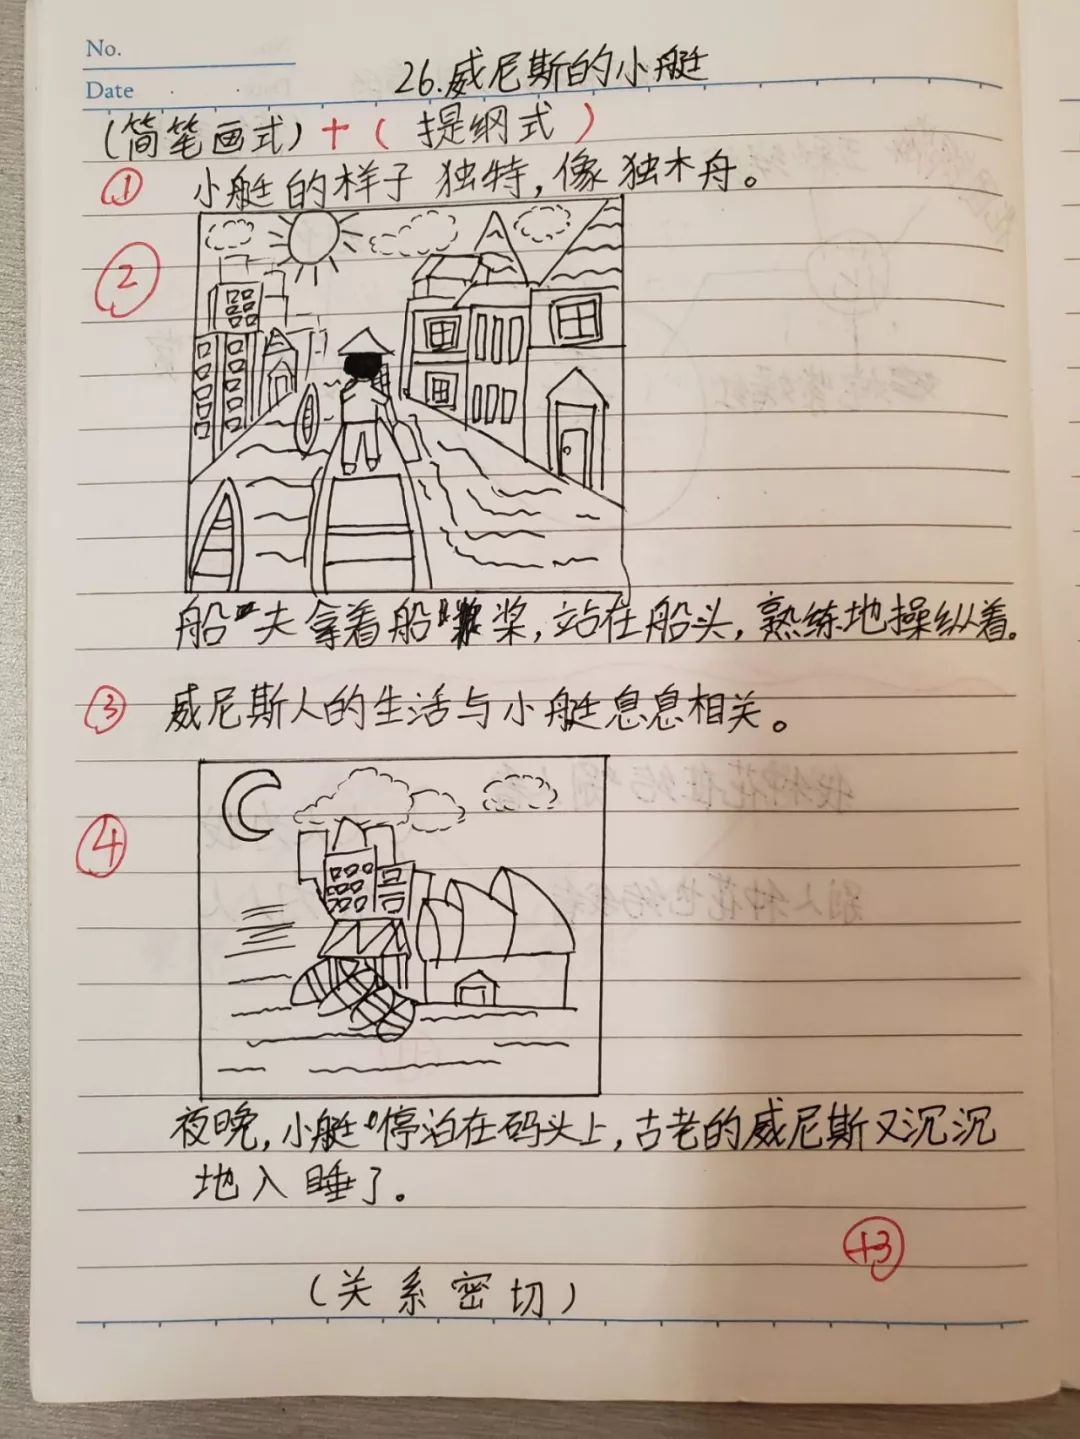 No.
Date
26.威尼斯的小艇
(简笔画式)+(提纲式)
① 小艇的样子独特,像独木舟。
②
船夫拿着船桨,站在船头,熟练地操纵着。
③ 威尼斯人的生活与小艇息息相关。
④
夜晚,小艇停泊在码头上,古老的威尼斯又沉沉
地入睡了。
+3
(关系密切)